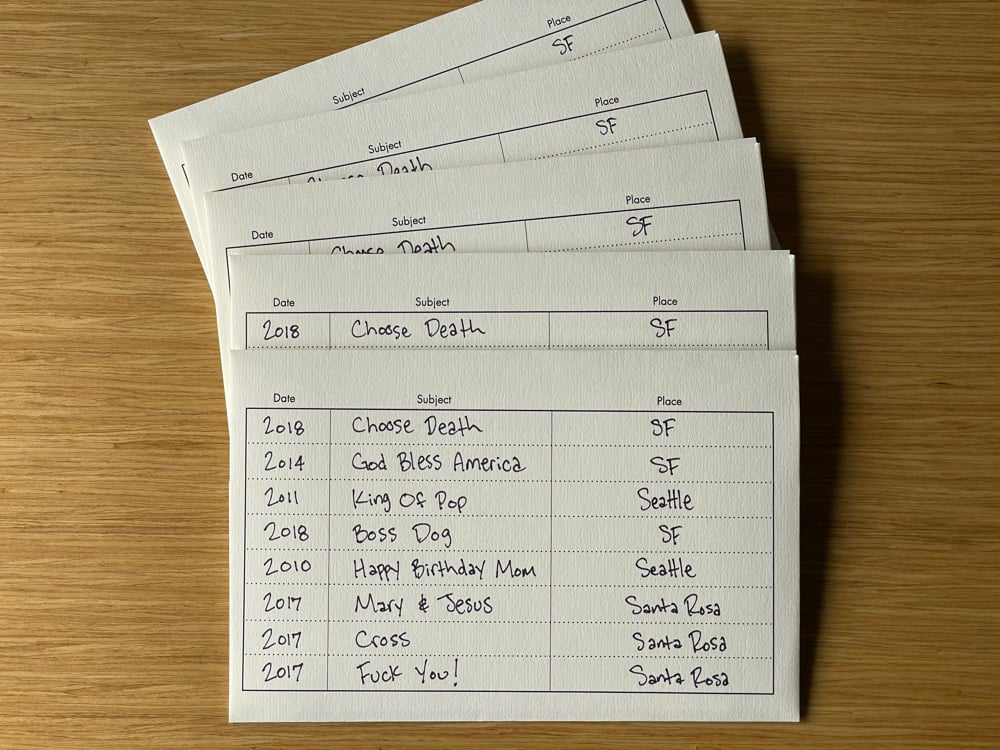 Place
SF
Subject
Place
SF
Subject
Date
Death
Place
SF
Subject
Date
Choose Death
Date Subject Place
2018 Choose Death SF
Date Subject Place
2018 Choose Death SF
2014 God Bless America SF
2011 King Of Pop Seattle
2018 Boss Dog SF
2010 Happy Birthday Mom Seattle
2017 Mary & Jesus Santa Rosa
2017 Cross Santa Rosa
2017 Fuck You! Santa Rosa